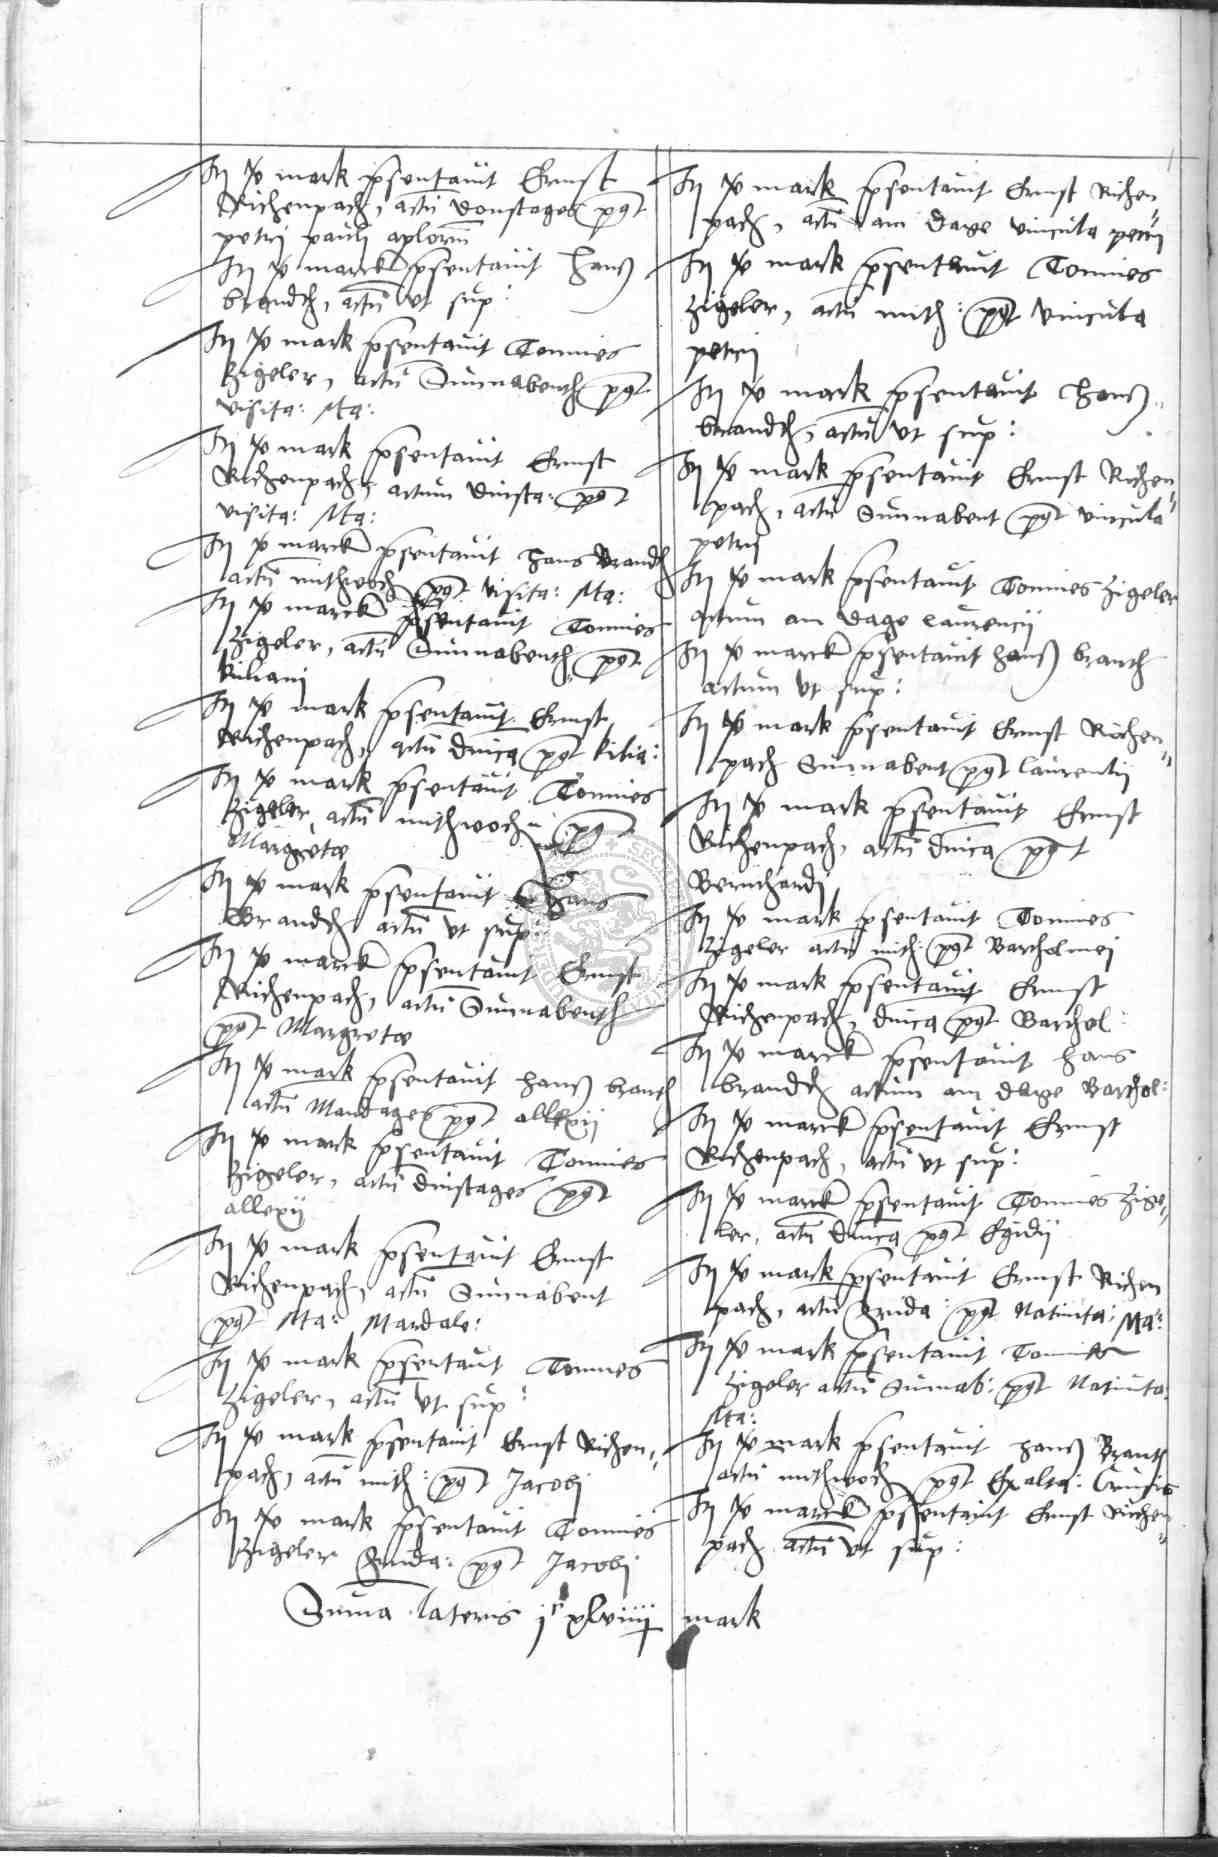 Itj x mark psentauit Ernst
Richenpach, actu donstages post
petrj paulj aplorum
Itj x marck psentauit Hans
brandth, actu vt sup:
Itj x mark psentauit Tonnies
Zigeler, actu Sunnabenth post
visita: Ma:
Itj x mark psentauit Ernst
Richenpach, actum dinsta: post
visita: Ma:
Itj x marck psentauit Hans Brandth
actu mithwoch post visita: Ma:
Itj x marck psentauit Tonnies
Zigeler, actu Sunnabenth post
kilianj
Itj x mark psentauit Ernst
Richenpach, actu dnica post kilia:
Itj x mark psentauit Tonnies
Zigeler, actu mithwoch post
Margretae
Itj x mark psentauit Hans
Brandth actu vt sup:
Itj x marck psentauit Ernst
Richenpach, actu Sunnabenth
post Margretae
Itj x mark psentauit Hans branth
actu Mandages post allexij
Itj x mark psentauit Tonnies
Zigeler, actu dinstages post
allexij
Itj x mark psentauit Ernst
Richenpach, actu Sunnabent
post Ma: Mardale:
Itj x mark psentaut Tonnies
Zigeler, actu vt sup:
Itj x mark psentauit Ernst Richen-
pach, actu mith: post Jacobj
Itj x mark psentauit Tonnies
Zigeler frida: post Jacobj
Itj x mark psentauit Ernst Richen
pach, actu am dage vincula petrij
Itj x mark psentauit Tonnies
Zigeler, actu mith: post vincula
petrij
Itj x mark psentauit Hans
brandth, actu vt sup:
Itj x mark psentauit Ernst Richen
pach, actu Sunnabent post vincula
petrij
Itj x mark psentauit Tonnies Zigeler
actum am dage laurencij
Itj x marck psentauit Hans branth
actum vt sup:
Itj x mark psentauit Ernst Richen-
pach Sunnabent post laurentij
Itj x mark psentauit Ernst
Richenpach, actu dnica post
Bernhardj
Itj x mark psentauit Tonnies
Zigeler actu mith: post Bartholmej
Itj x mark psentauit Ernst
Richenpach, dnica post Barthol:
Itj x marck psentauit Hans
brandth actum am dage Barthol:
Itj x marck psentauit Ernst
Richenpach, actu vt sup:
Itj x marck psentauit Tonnies Zige-
ler, actu dnica post Egidij
Itj x mark psentauit Ernst Richen
pach, actu frida: post Natiuita: Ma:
Itj x mark psentauit Tonnies
Zigeler actu Sunnab: post Natiuita:
Ma:
Itj x mark psentauit Hans Branth
actu mithwoch post Exalta: Crucis
Itj x marck psentauit Ernst Richen-
pach actu vt sup:
Suma lateris jc xlviiij mark